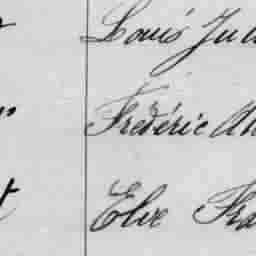 Louis Ju
Frédéric Al
Elie Fra